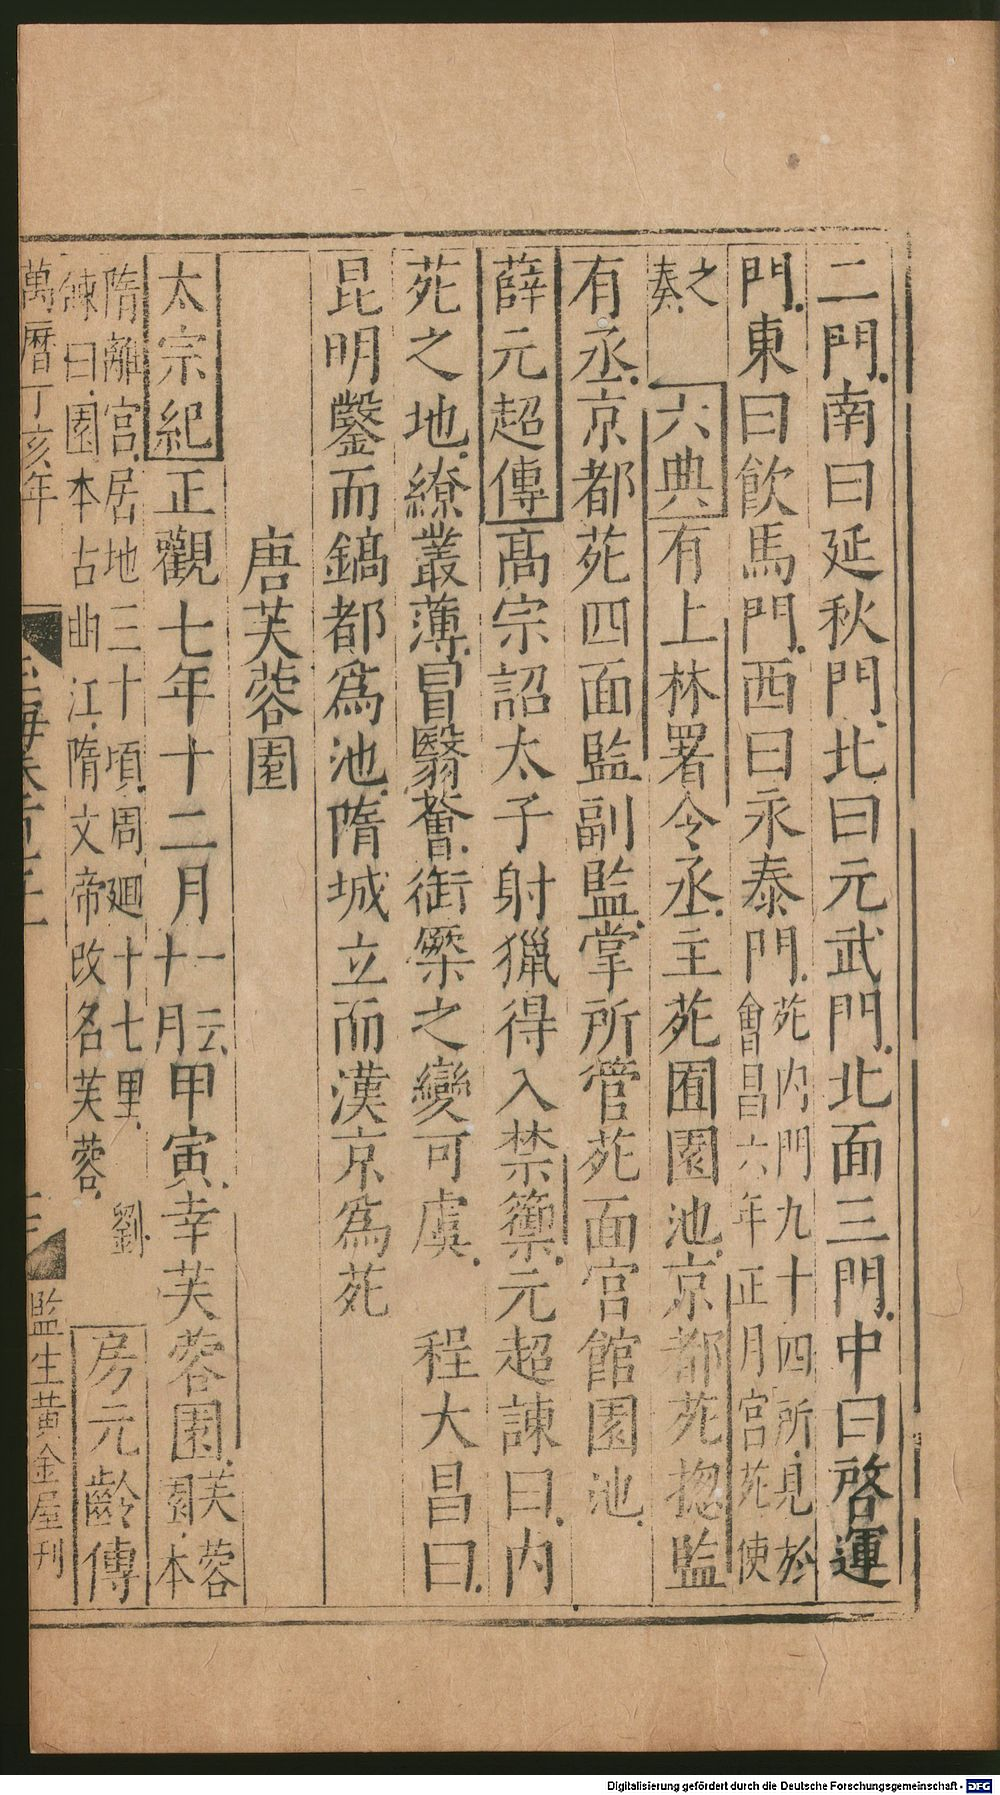 二門南曰延秋門北曰元武門北面三門中曰啓運
門東曰飲馬門西曰永泰門苑内門九十四所見於
會昌六年正月宮苑使
之
奏
六典有上林署令丞主苑囿園池京都苑揔監
有丞京都苑四面監副監掌所管苑面宮館園池
薛元超傳高宗詔太子射獵得入禁籞元超諫曰内
苑之地繚叢薄冒翳薈銜橜之變可虞 程大昌曰
昆明鑿而鎬都爲池隋城立而漢京爲苑
唐芙蓉園
太宗紀正觀七年十二月一云
十月甲寅幸芙蓉園芙蓉
園本
隋離宮居地三十頃周廻十七里 劉
餗曰園本古曲江隋文帝改名芙蓉
房元齡傳
萬曆丁亥年
監生黄金屋刊
Digitalisierung gefördert durch die Deutsche Forschungsgemeinschaft - DFG